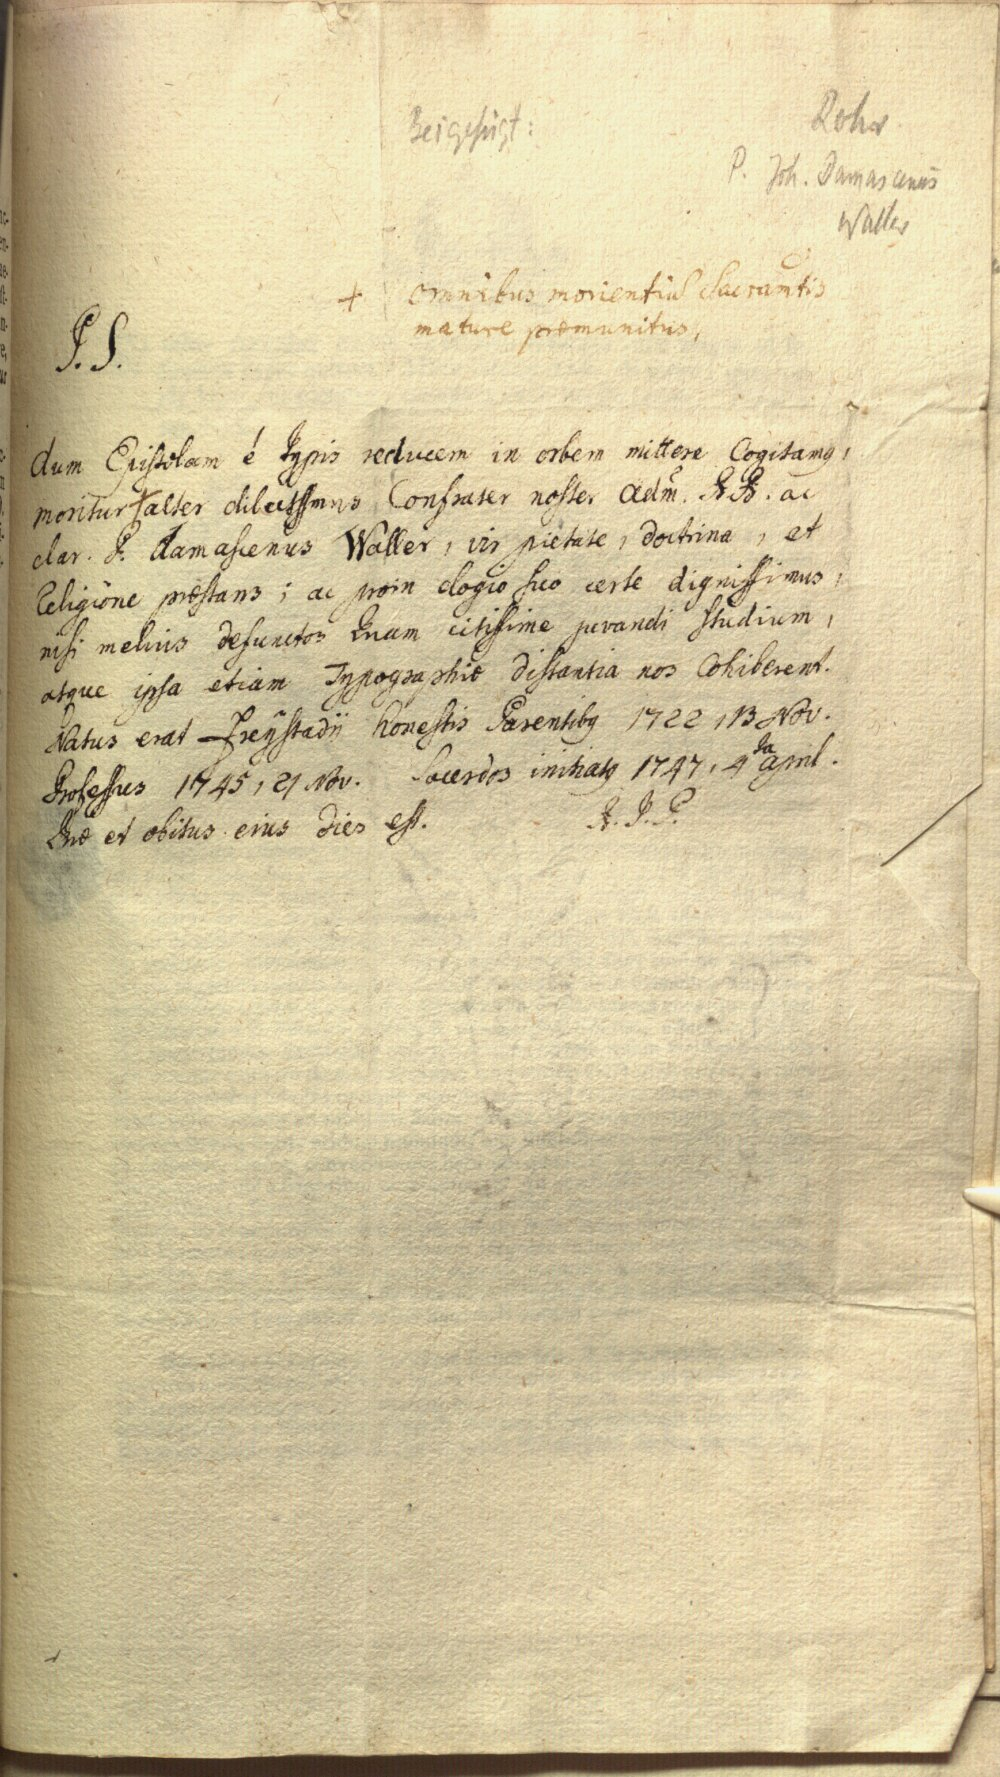 Beigefügt:
Rohr
P. Joh. Damascenus
Waller
+ omnibus morientiū Sacramtis
mature præmunitus,
P. S.
Dum Epistolam é Typis reducem in orbem mittere Cogitamq,
moritur + alter dilectissimus Confrater noster Adm. R. R. ac
clar. P. Damascenus Waller, vir pietate, doctrina, et
Religione præstans; ac proin elogio suo certe dignissimus,
nisi melius defunctos quam citissime juvandi studium,
atque ipsa etiam Typographiæ distantia nos Cohiberent.
Natus erat Freÿstadii honestis Parentibq 1722, 13 Nov.
Professus 1745, 21 Nov. Sacerdos initiatq 1747, 4ta April.
Quæ et obitus eius dies est. R. I. P.